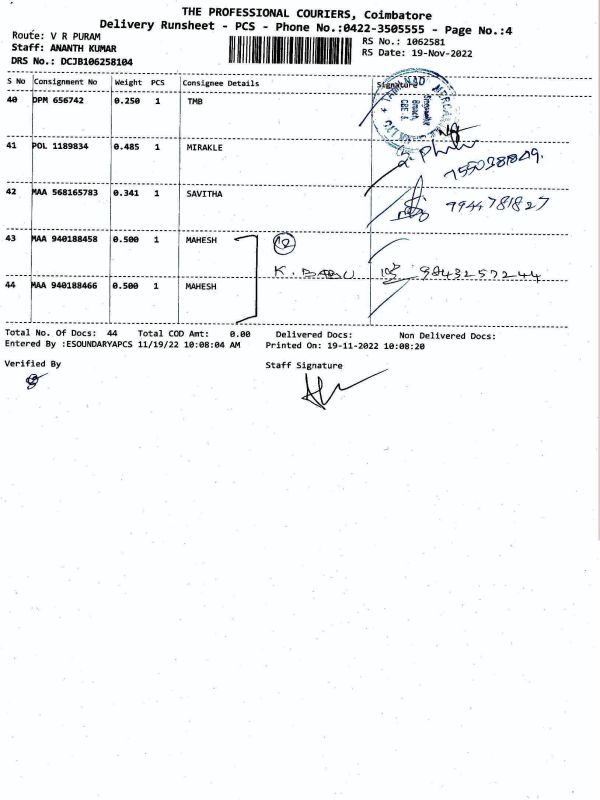 THE PROFESSIONAL COURIERS, Coimbatore
Delivery Runsheet - PCS - Phone No.:0422-3505555 - Page No.:4
Route: V R PURAM
Staff: ANANTH KUMAR
DRS No.: DCJB106258104
RS No.: 1062581
RS Date: 19-Nov-2022
S No Consignment No Weight PCS Consignee Details Signature
40 DPM 656742 0.250 1 TMB
41 POL 1189834 0.485 1 MIRAKLE
7550381849.
42 MAA 568165783 0.341 1 SAVITHA 9944781827
43 MAA 940188458 0.500 1 MAHESH
K. BABU 9843257244
44 MAA 940188466 0.500 1 MAHESH
Total No. Of Docs: 44 Total COD Amt: 0.00 Delivered Docs: Non Delivered Docs:
Entered By :ESOUNDARYAPCS 11/19/22 10:08:04 AM Printed On: 19-11-2022 10:08:20
Verified By Staff Signature